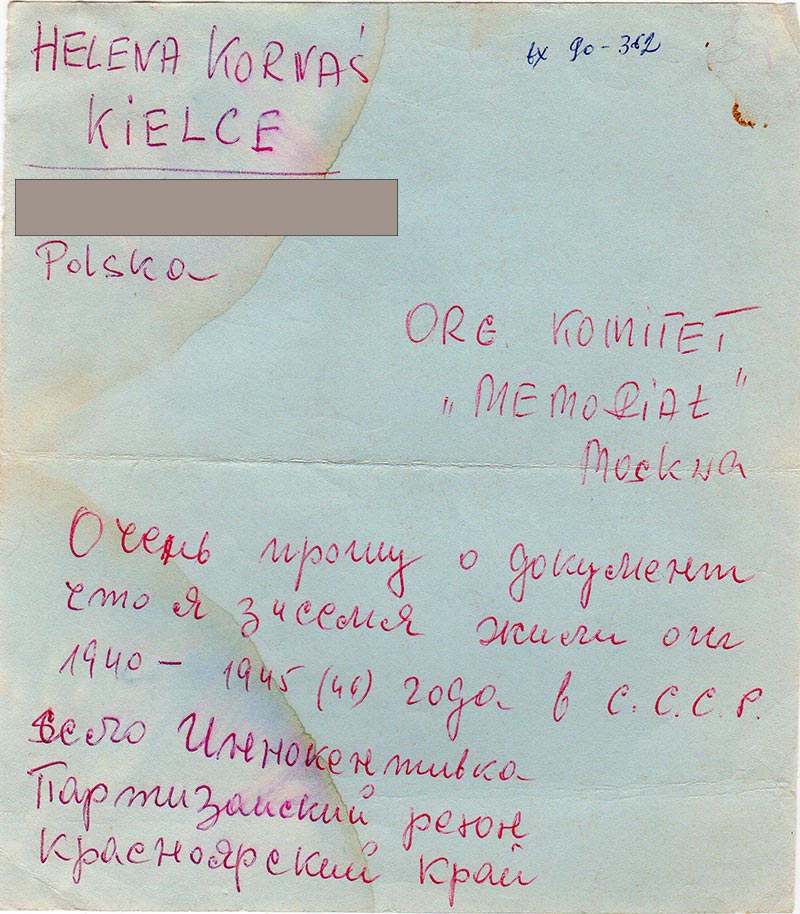 HELENA KORNAŚ
вх 90-362
KiELCE
Polska
ORG. KOMiTET
„MEMORiAŁ”
Moskwa
Очень прошу о документ
что я зисемя жили от
1940 – 1945 (46) года в С.С.С.Р.
село Иннокентивка
Партизанский реюон
Красноярский край